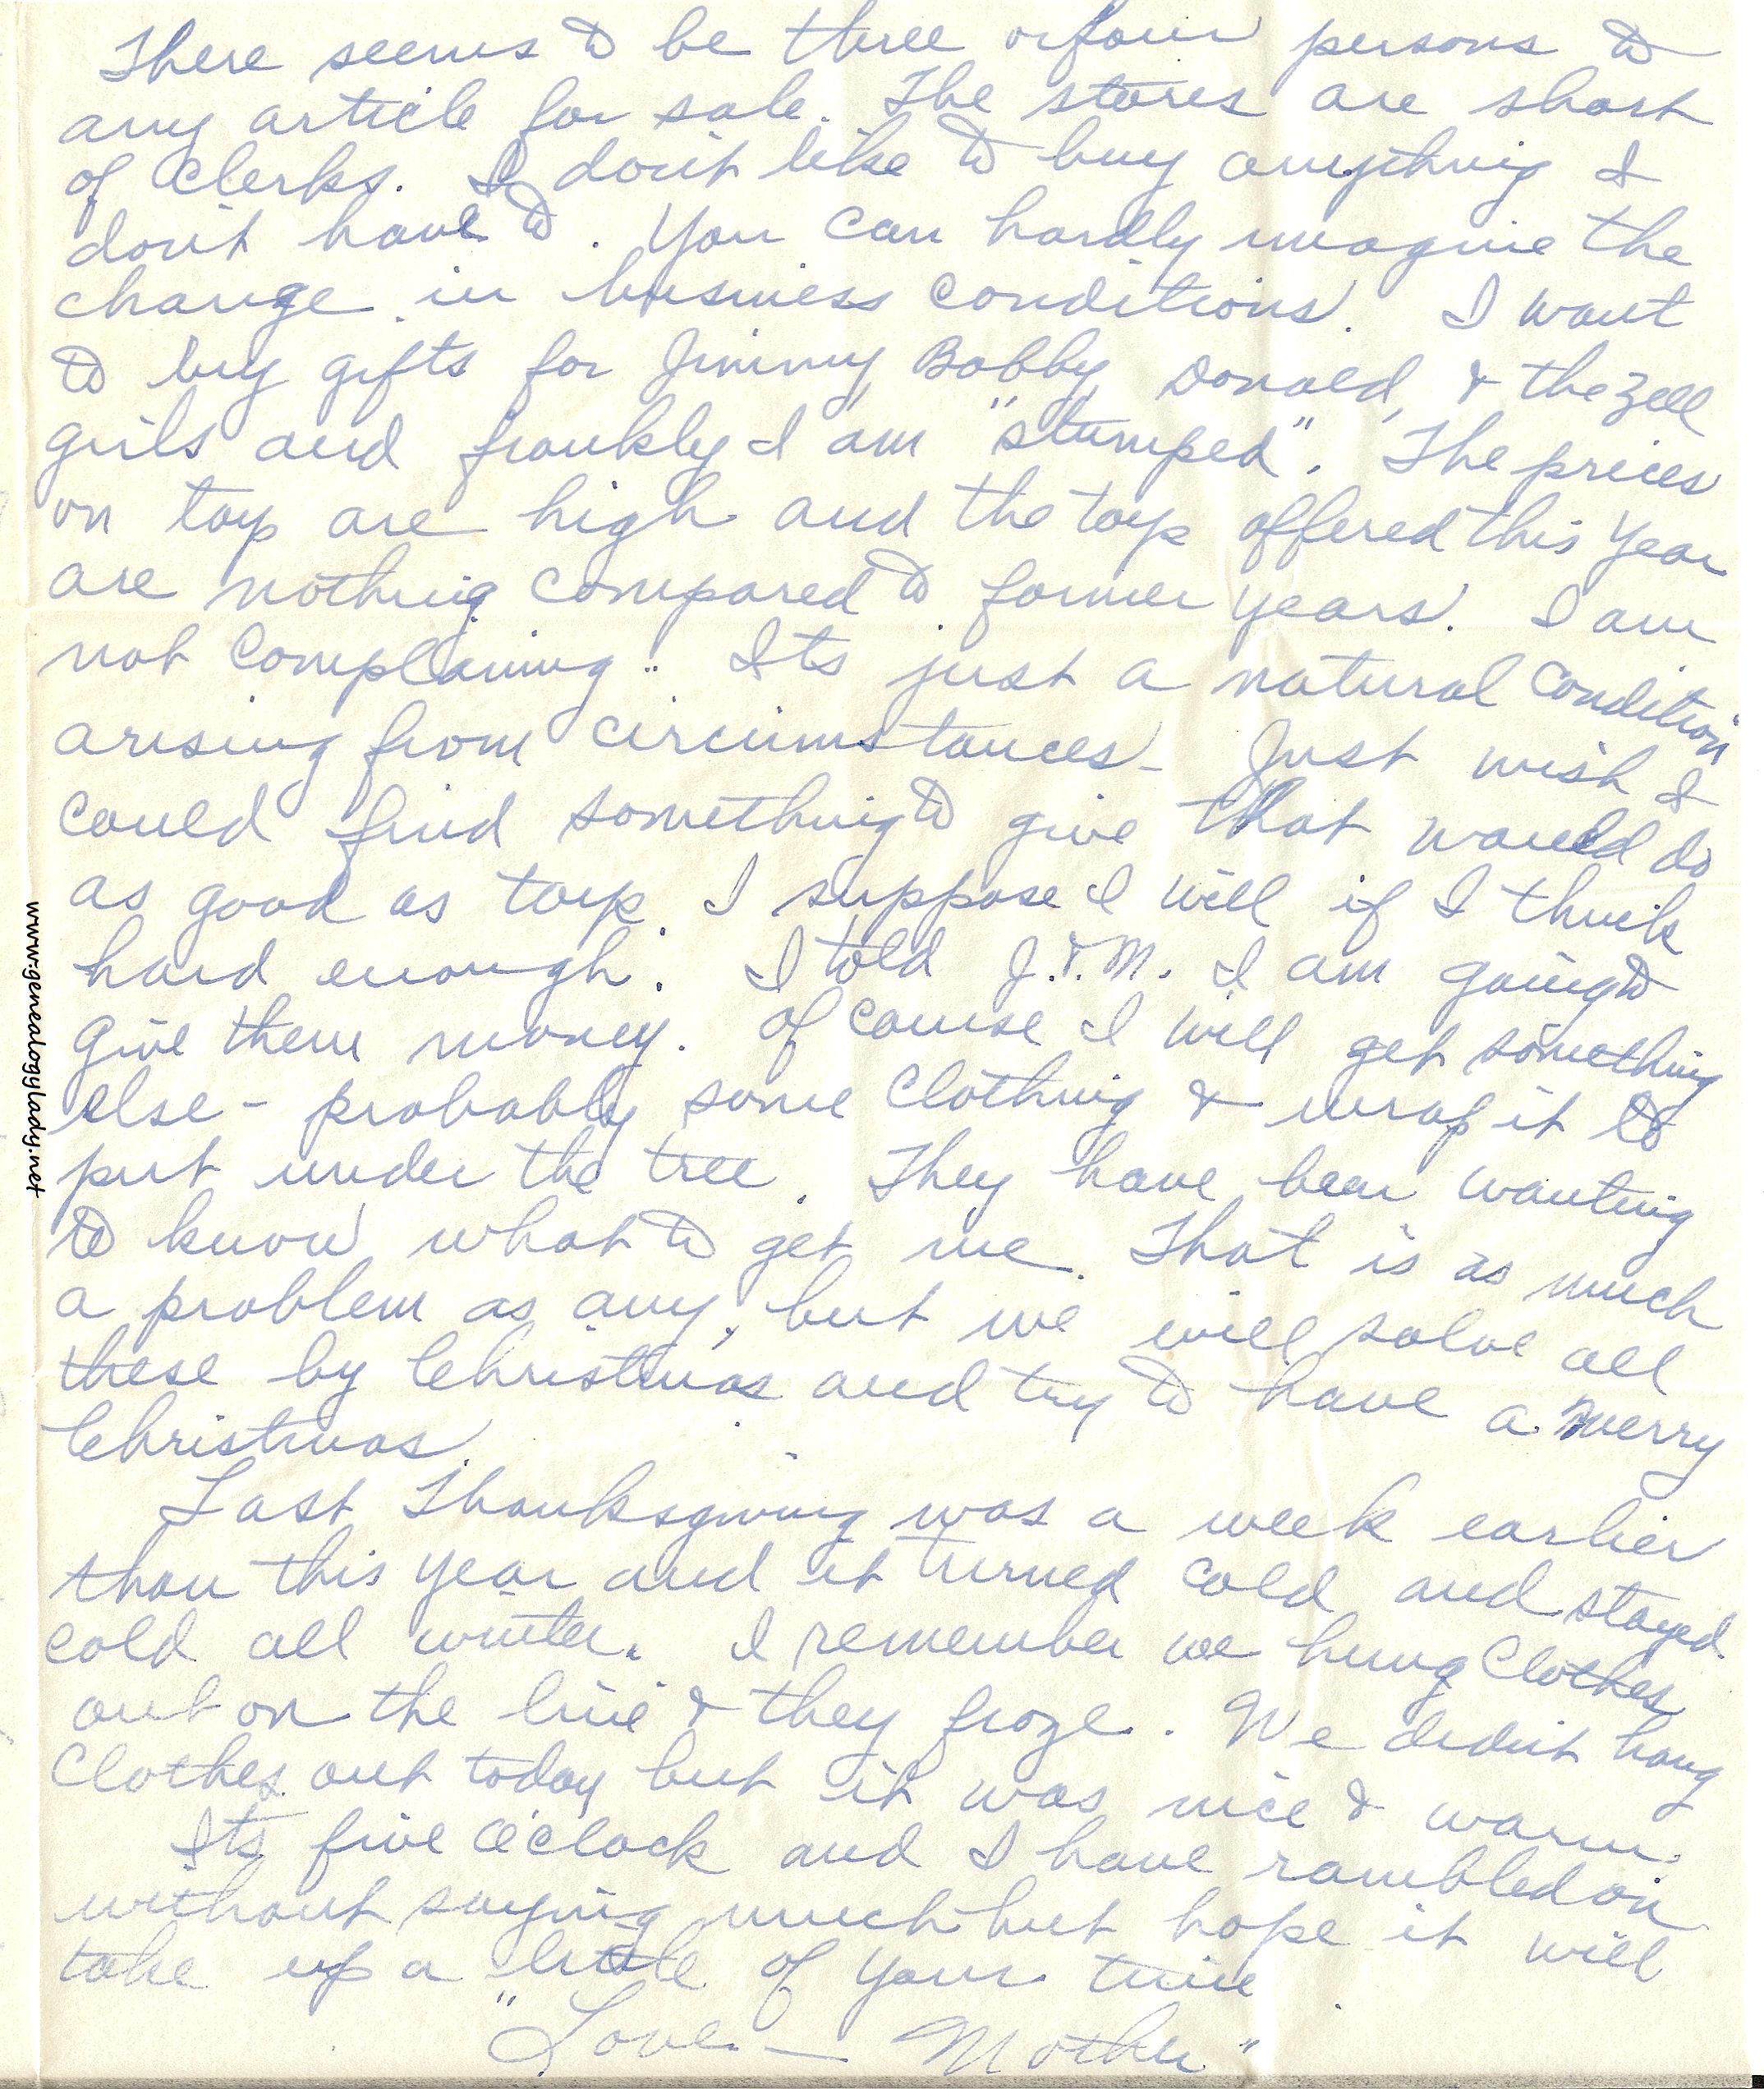 There seems to be three or four persons to
any article for sale. The stores are short
of clerks. I don't like to buy anything I
don't have to. You can hardly imagine the
change in business conditions. I want
to buy gifts for Jimmy, Bobby, Donald, & the Zell
girls and frankly I am "stumped". The prices
on toys are high and the toys offered this year
are nothing compared to former years. I am
not complaining. Its just a natural condition
arising from circumstances - Just wish I
could find something to give that would do
as good as toys. I suppose I will if I think
hard enough. I told J. & M. I am going to
give them money. Of course I will get something
else - probably some clothing & wrap it to
put under the tree. They have been wanting
to know what to get me. That is as much
a problem as any, but we will solve all
these by Christmas and try to have a Merry
Christmas.
Last Thanksgiving was a week earlier
than this year and it turned cold and stayed
cold all winter. I remember we hung clothes
out on the line & they froze. We didn't hang
clothes out today but it was nice & warm.
Its five o'clock and I have rambled on
without saying much but hope it will
take up a little of your time
"Love — Mother"
www.genealogylady.net